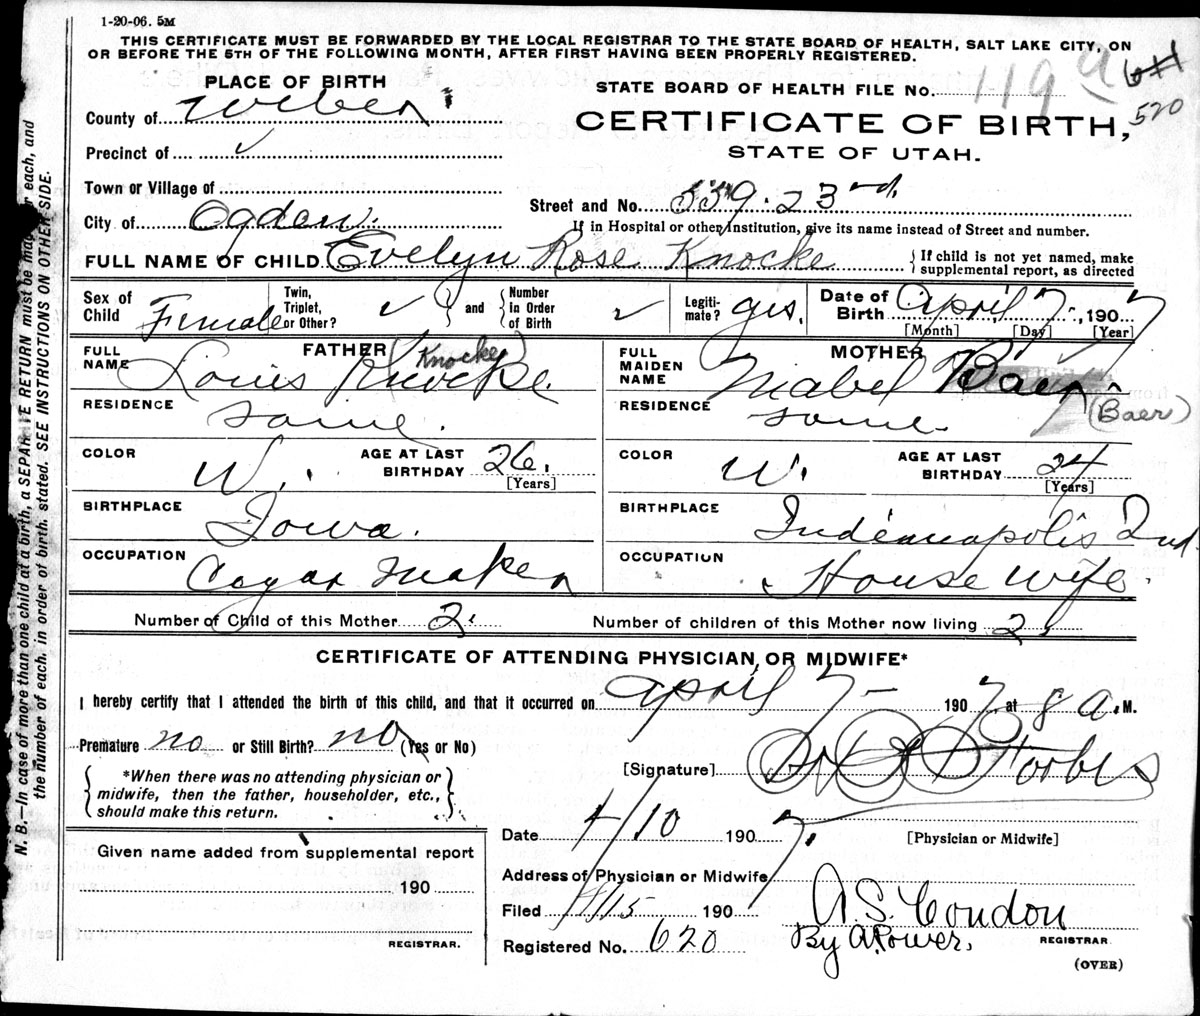 1-20-06. 5M
THIS CERTIFICATE MUST BE FORWARDED BY THE LOCAL REGISTRAR TO THE STATE BOARD OF HEALTH, SALT LAKE CITY, ON
OR BEFORE THE 5TH OF THE FOLLOWING MONTH, AFTER FIRST HAVING BEEN PROPERLY REGISTERED.
PLACE OF BIRTH
STATE BOARD OF HEALTH FILE No. 119 a
520
County of Weber
CERTIFICATE OF BIRTH,
Precinct of ✓
STATE OF UTAH.
Town or Village of
Street and No. 339. 23rd
City of Ogden.
If in Hospital or other Institution, give its name instead of Street and number.
FULL NAME OF CHILD Evelyn Rose Knocke
If child is not yet named, make
supplemental report, as directed
Sex of Child Female
Twin, Triplet, or Other? ✓
and
Number in Order of Birth ✓
Legiti-mate? yes.
Date of Birth April 7, 1907
[Month] [Day] [Year]
FATHER
FULL NAME Louis Knocke. (Knocke)
MOTHER
FULL MAIDEN NAME Mabel Baer (Baer)
RESIDENCE Same.
RESIDENCE Same.
COLOR W.
AGE AT LAST BIRTHDAY 26.
[Years]
COLOR W.
AGE AT LAST BIRTHDAY 24
[Years]
BIRTHPLACE Iowa.
BIRTHPLACE Indianapolis Ind.
OCCUPATION Cigar Maker
OCCUPATION House wife.
Number of Child of this Mother 2.
Number of children of this Mother now living 2
CERTIFICATE OF ATTENDING PHYSICIAN OR MIDWIFE*
I hereby certify that I attended the birth of this child, and that it occurred on April 7- 1907 at 8 A. M.
Premature no or Still Birth? no (Yes or No)
[Signature] Forbes
*When there was no attending physician or
midwife, then the father, householder, etc.,
should make this return.
Date 4/10 1907.
[Physician or Midwife]
Given name added from supplemental report
190
REGISTRAR.
Address of Physician or Midwife
Filed 4/15 1907
A. S. Condon
Registered No. 620
By A. Power.
REGISTRAR
(OVER)
N. B.—In case of more than one child at a birth, a SEPARATE RETURN must be made for each, and
the number of each, in order of birth, stated. SEE INSTRUCTIONS ON OTHER SIDE.